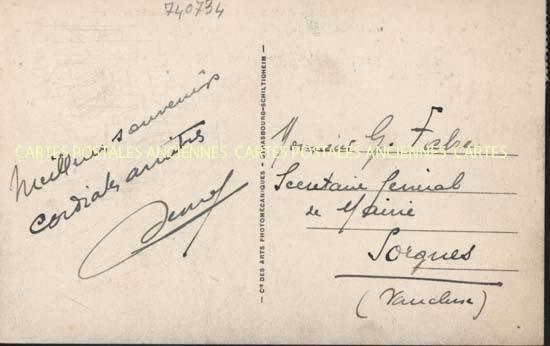 740734
Meilleurs souvenirs
cordiales amitiés
Cie DES ARTS PHOTOMÉCANIQUES - STRASBOURG-SCHILTIGHEIM
Monsieur G. Fabre
Secretaire General
de Mairie
Sorgues
(Vaucluse)
CARTES POSTALES ANCIENNES CARTES POSTALES ANCIENNES CARTES POSTALES ANCIENNES